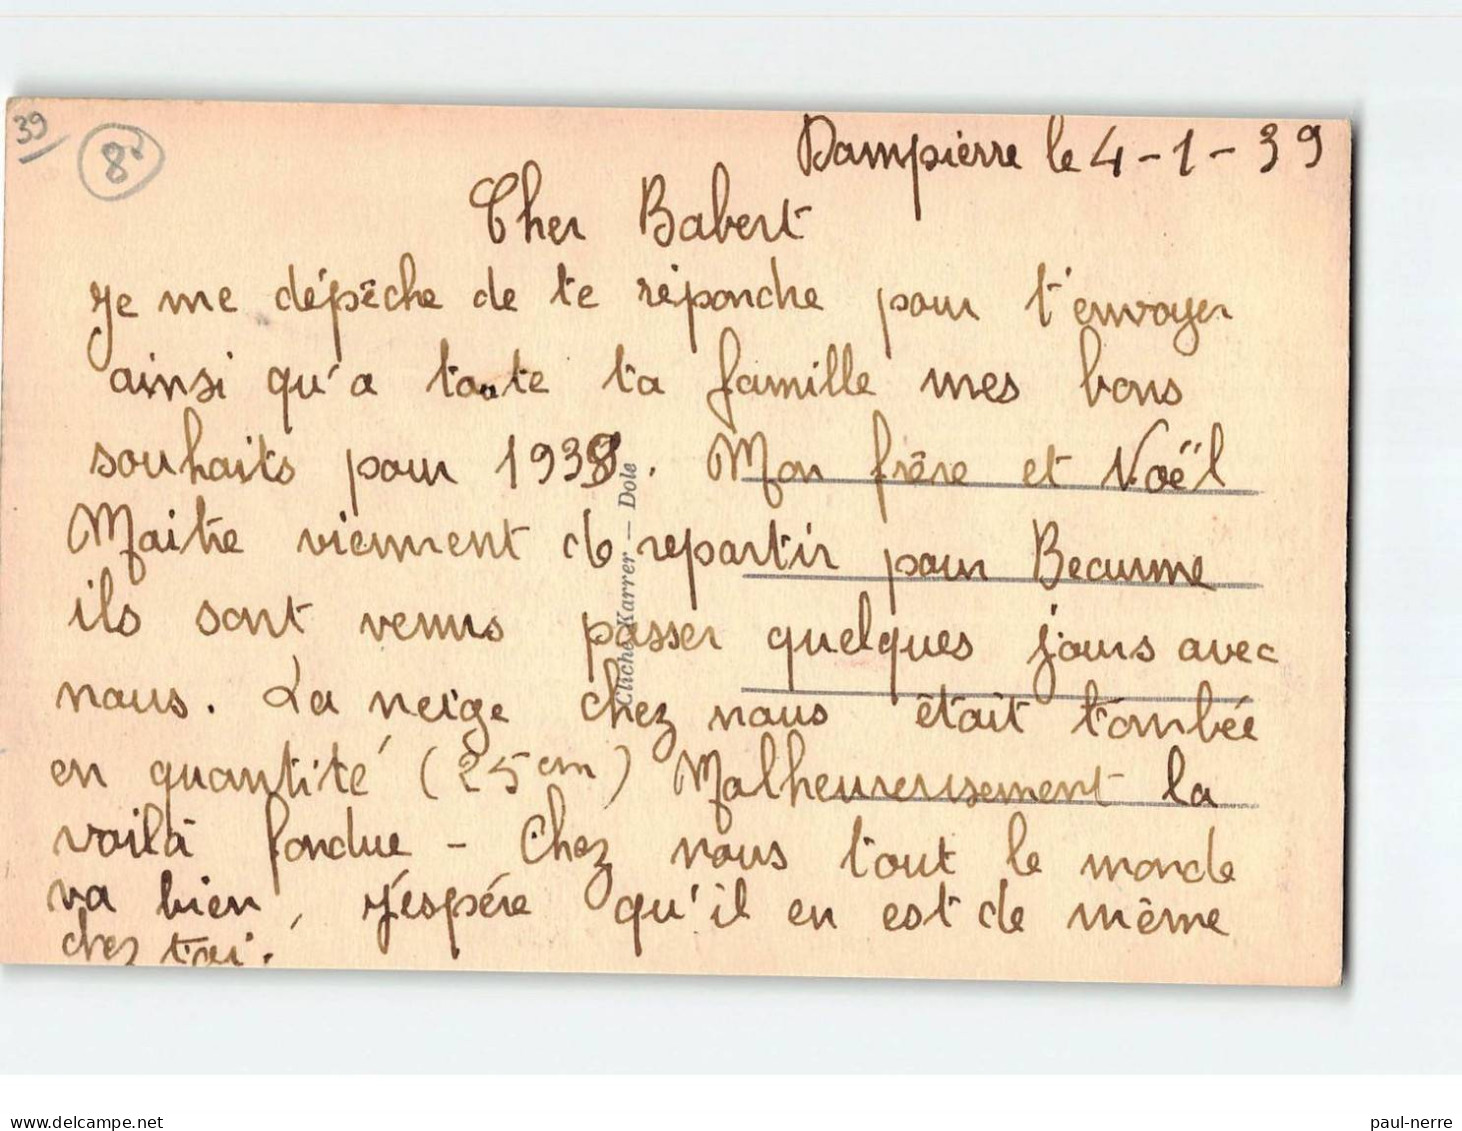 39
8
Dampierre le 4-1-39
Cher Babert
Je me dépêche de te répondre pour t'envoyer
ainsi qu'a toute ta famille mes bons
souhaits pour 1939. Mon frère et Noël
Maitre viennent de repartir pour Beaume
ils sont venus passer quelques jours avec
nous. La neige chez nous était tombée
en quantité (25 cm) Malheureusement la
voilà fondue - Chez nous tout le monde
va bien, j'espére qu'il en est de même
chez toi.
Cliché Karrer — Dole
delcampe.net
paul-nerre